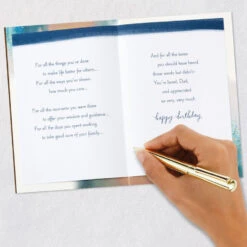 For all the things you've done
to make life better for others...
For all the ways you've shown
how much you care...
For all the moments you were there
to offer your wisdom and guidance...
For all the days you spent working
to take good care of your family...
And for all the times
you should have heard
these words but didn't–
You're loved, Dad,
and appreciated
so very, very much.
happy birthday